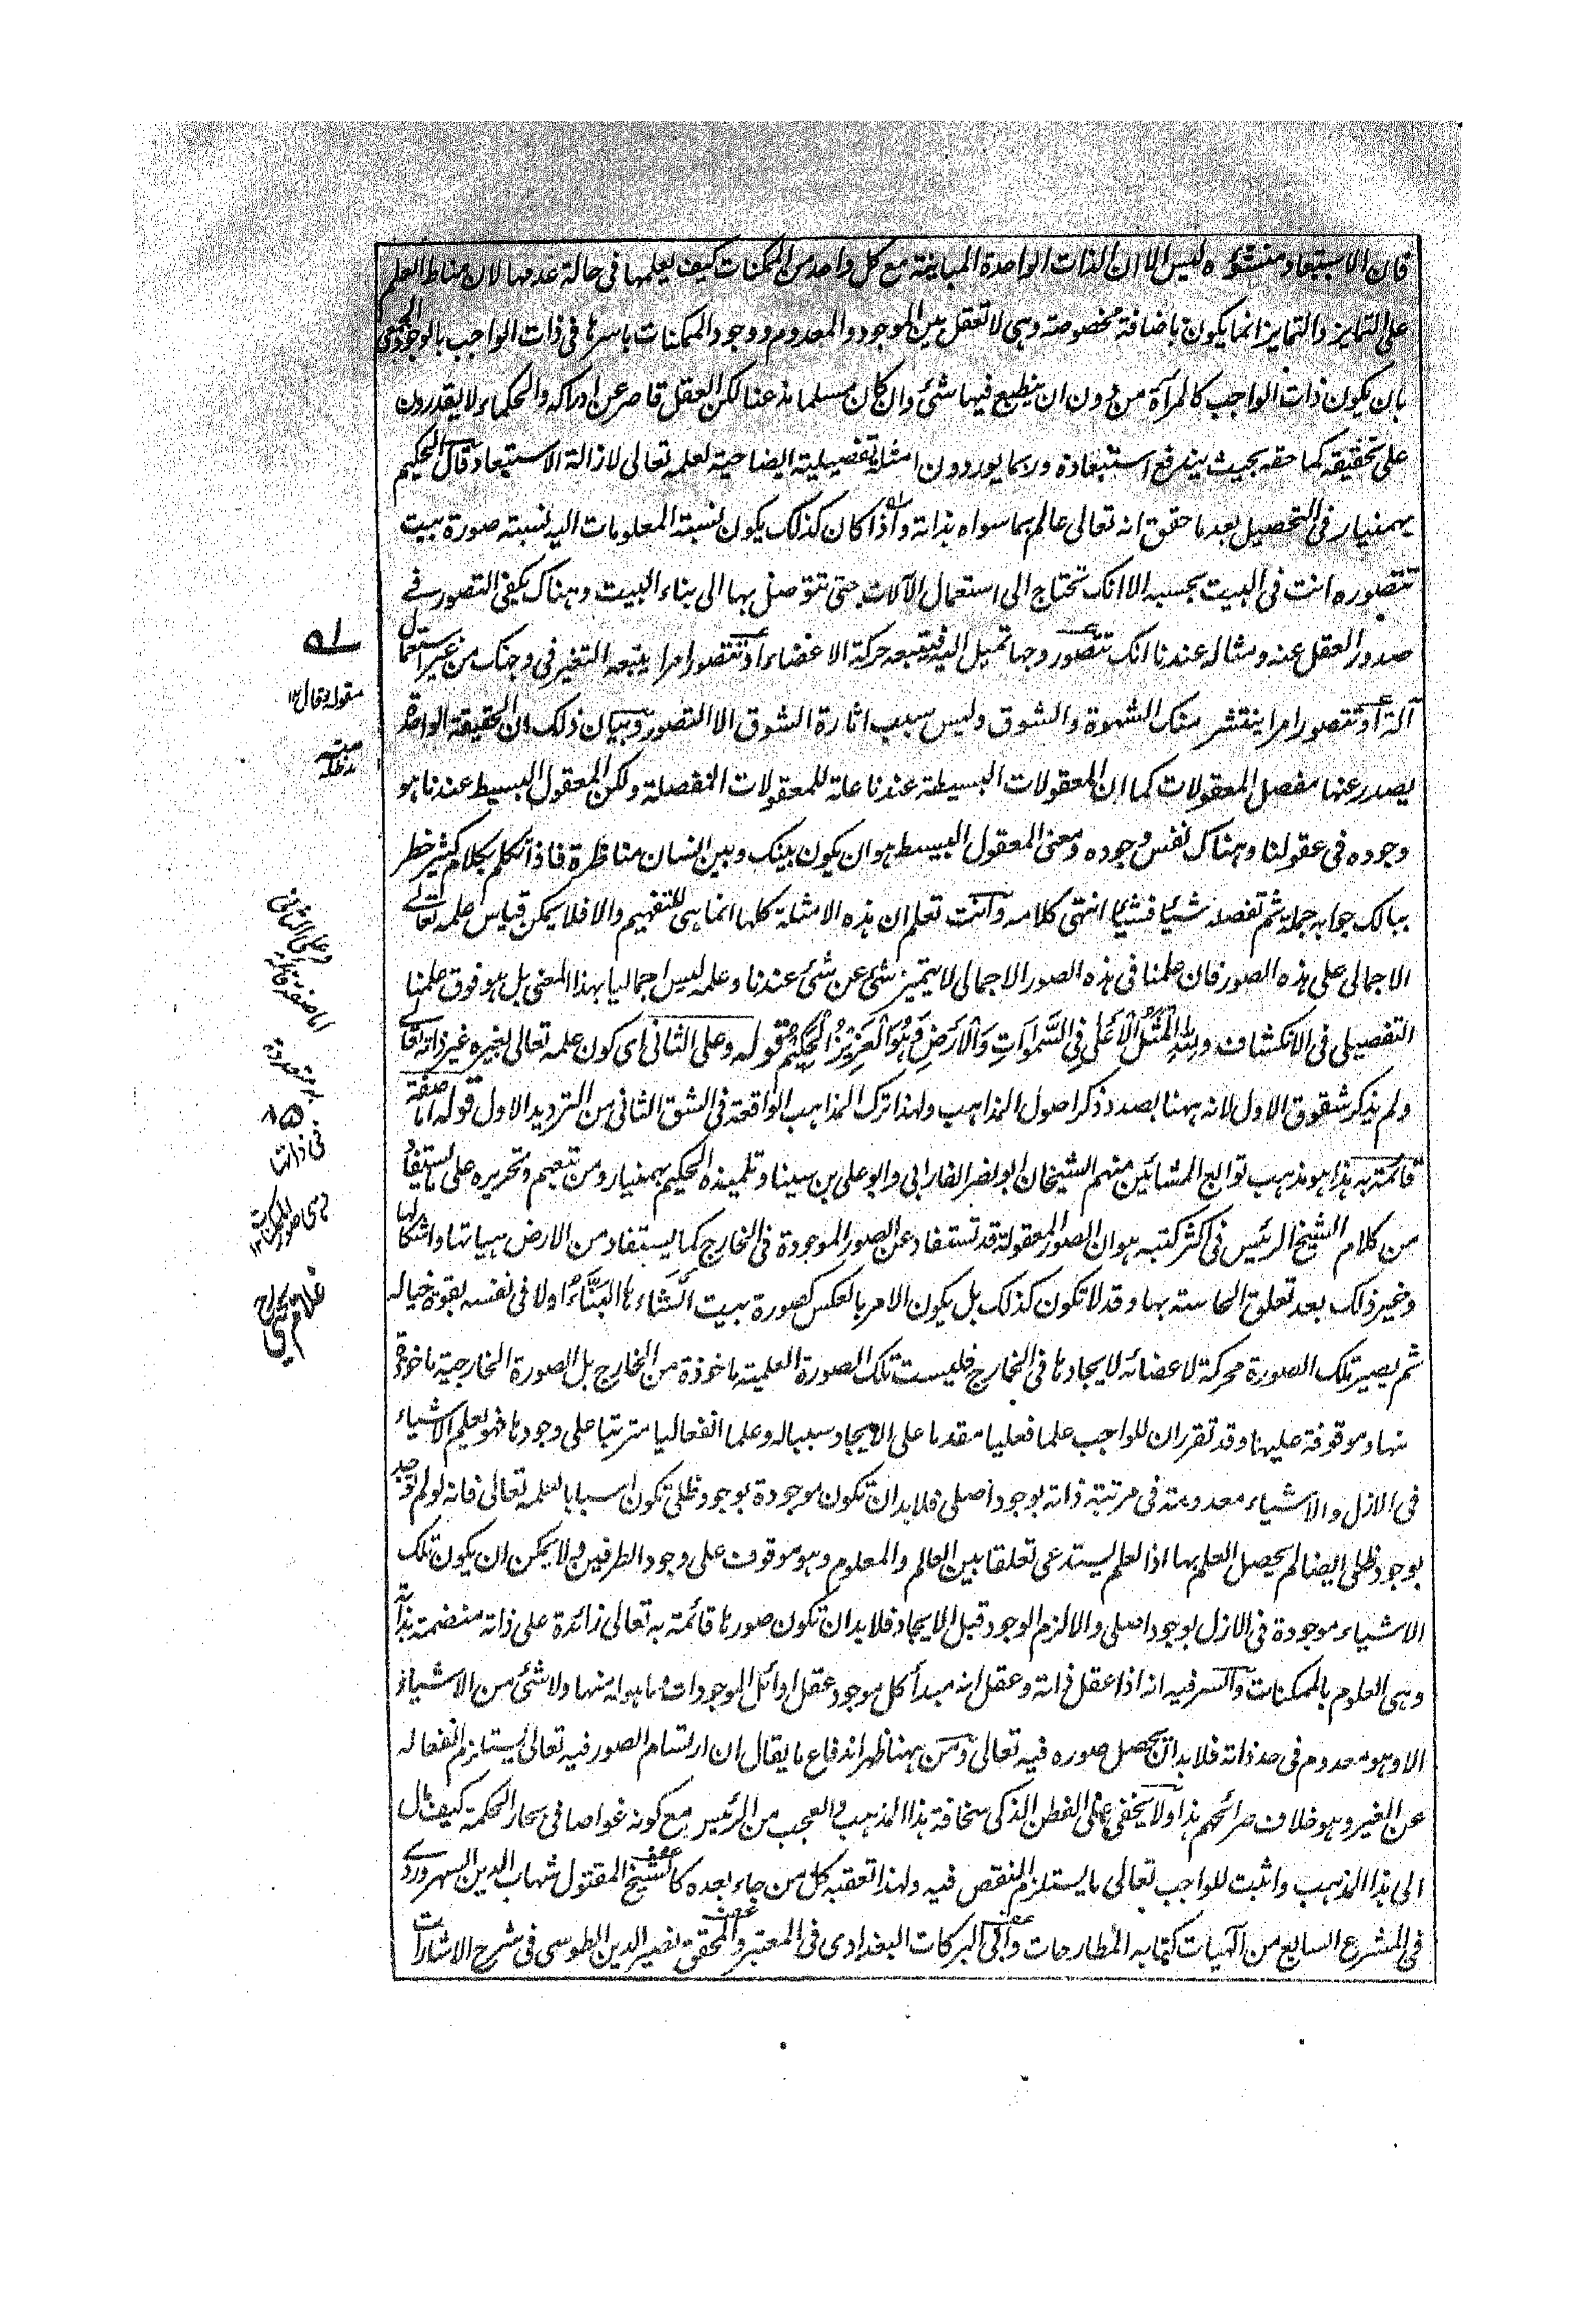 فان الاستبعاد منشؤه ليس الا ان الذات الواحدة المباينة مع كل واحد من الممكنات كيف يعلمها فى حالة عدمها لان مناط العلم
على التمايز والتمايز انما يكون باضافة مخصوصة وهى لا تعقل بين الموجود والمعدوم ووجود الممكنات باسرها فى ذات الواجب بالوجود الجمعى
بان يكون ذات الواجب كالمرآة من دون ان ينطبع فيها شئ وان كان مسلما عندنا لكن العقل قاصر عن ادراكه والحكماء لا يقدرون
على تحقيقه كما حقه بحيث يندفع استبعاده وربما يوردون امثلة تفصيلية ايضاحية لعلمه تعالى لازالة الاستبعاد قال الحكيم
بهمنيار فى التحصيل بعد ما حقق انه تعالى عالم بما سواه بذاته واذا كان كذلك يكون نسبة المعلومات اليه نسبة صورة بيت
تتصوره انت فى البيت بحسبه الا انك تحتاج الى استعمال الآلات حتى تتوصل بها الى بناء البيت وهناك يكفى التصور فى
صدور العقل عنه ومثاله عندنا انك تتصور وجها تميل اليه فيتبعه حركة الاعضاء او تتصور امرا يتبعه التغير فى وجنك من غير استعمال
آلة او تتصور امرا ينتشر منك الشهوة والشوق وليس سبب اثارة الشوق الا التصور وبيان ذلك ان الحقيقة الواحدة
يصدر عنها مفصل المعقولات كما ان المعقولات البسيطة عندنا علة للمعقولات المفصلة ولكن المعقول البسيط عندنا هو
وجوده فى عقولنا وهناك نفس وجوده ومعنى المعقول البسيط هو ان يكون بينك وبين انسان مناظرة فاذا تكلم بكلام كثير خطر
ببالك جوابه جملة ثم تفصله شيئا فشيئا انتهى كلامه وانت تعلم ان هذه الامثلة كلها انما هى للتفهيم والا فلا يمكن قياس علمه تعالى
الاجمالى على هذه الصور فان علمنا فى هذه الصور الاجمالى لا يتميز شئ عن شئ عندنا وعلمه ليس اجماليا بهذا المعنى بل هو فوق علمنا
التفصيلى فى الانكشاف ولله المثل الاعلى فى السموات والارض وهو العزيز الحكيم قوله وعلى الثانى اى كون علمه تعالى لغيره غير ذاته تعالى
ولم يذكر شقوق الاول لانه ههنا بصدد ذكر اصول المذاهب ولهذا ترك المذاهب الواقعة فى الشق الثانى من الترديد الاول قوله اما صفة
قائمة به هذا هو مذهب توابع المشائين منهم الشيخان ابو نصر الفارابى وابو على بن سينا وتلميذه الحكيم بهمنيار ومن تبعهم وتحريره على ما يستفاد
من كلام الشيخ الرئيس فى اكثر كتبه هو ان الصور المعقولة قد تستفاد عن الصور الموجودة فى الخارج كما يستفاد من الارض هيأتها واشكالها
وغير ذلك بعد تعلق الحاسة بها وقد لا تكون كذلك بل يكون الامر بالعكس كصورة بيت انشأها البناء اولا فى نفسه بقوة خياله
ثم يصير تلك الصورة محركة لاعضائه لايجادها فى الخارج فليست تلك الصورة العلمية ماخوذة من الخارج بل الصورة الخارجية ماخوذة
منها وموقوفة عليها وقد تقرر ان للواجب علما فعليا مقدما على الايجاد سببا له وعلما انفعاليا مترتبا على وجودها فهو يعلم الاشياء
فى الازل والاشياء معدومة فى مرتبة ذاته بوجود اصلى فلا بد ان تكون موجودة بوجود ظلى تكون اسبابا لعلمه تعالى فانه لو لم توجد
بوجود ظلى ايضا لم يحصل العلم بها اذ العلم يستدعى تعلقا بين العالم والمعلوم وهو موقوف على وجود الطرفين ولا يمكن ان يكون تلك
الاشياء موجودة فى الازل بوجود اصلى والا لزم الوجود قبل الايجاد فلا بد ان تكون صورها قائمة به تعالى زائدة على ذاته منضمة بذاته
وهى العلوم بالممكنات والسر فيه انه اذا عقل ذاته وعقل انه مبدأ كل موجود عقل اوائل الموجودات وما هو له منها ولا شئ من الاشياء
الا وهو معدوم فى حد ذاته فلا بد ان يحصل صوره فيه تعالى ومن ههنا ظهر اندفاع ما يقال ان ارتسام الصور فيه تعالى يستلزم انفعاله
عن الغير وهو خلاف صرائحهم هذا ولا يخفى على الفطن الذكى سخافة هذا المذهب والعجب من الرئيس مع كونه غواصا فى بحار الحكمة كيف مال
الى هذا المذهب واثبت للواجب تعالى ما يستلزم النقص فيه ولهذا تعقبه كل من جاء بعده كالشيخ المقتول شهاب الدين السهروردى
فى المشرع السابع من آلهيات كتابه المطارحات وابى البركات البغدادى فى المعتبر والمحقق نصير الدين الطوسى فى شرح الاشارات
ه ا
مقولة قال ١٢
منه
مد ظله
وعلى الثانى
اما صفة قائمة
به متعددة
٨٥
فى ذاتها
هى صور الممكنات ١٢
غلام يحيى